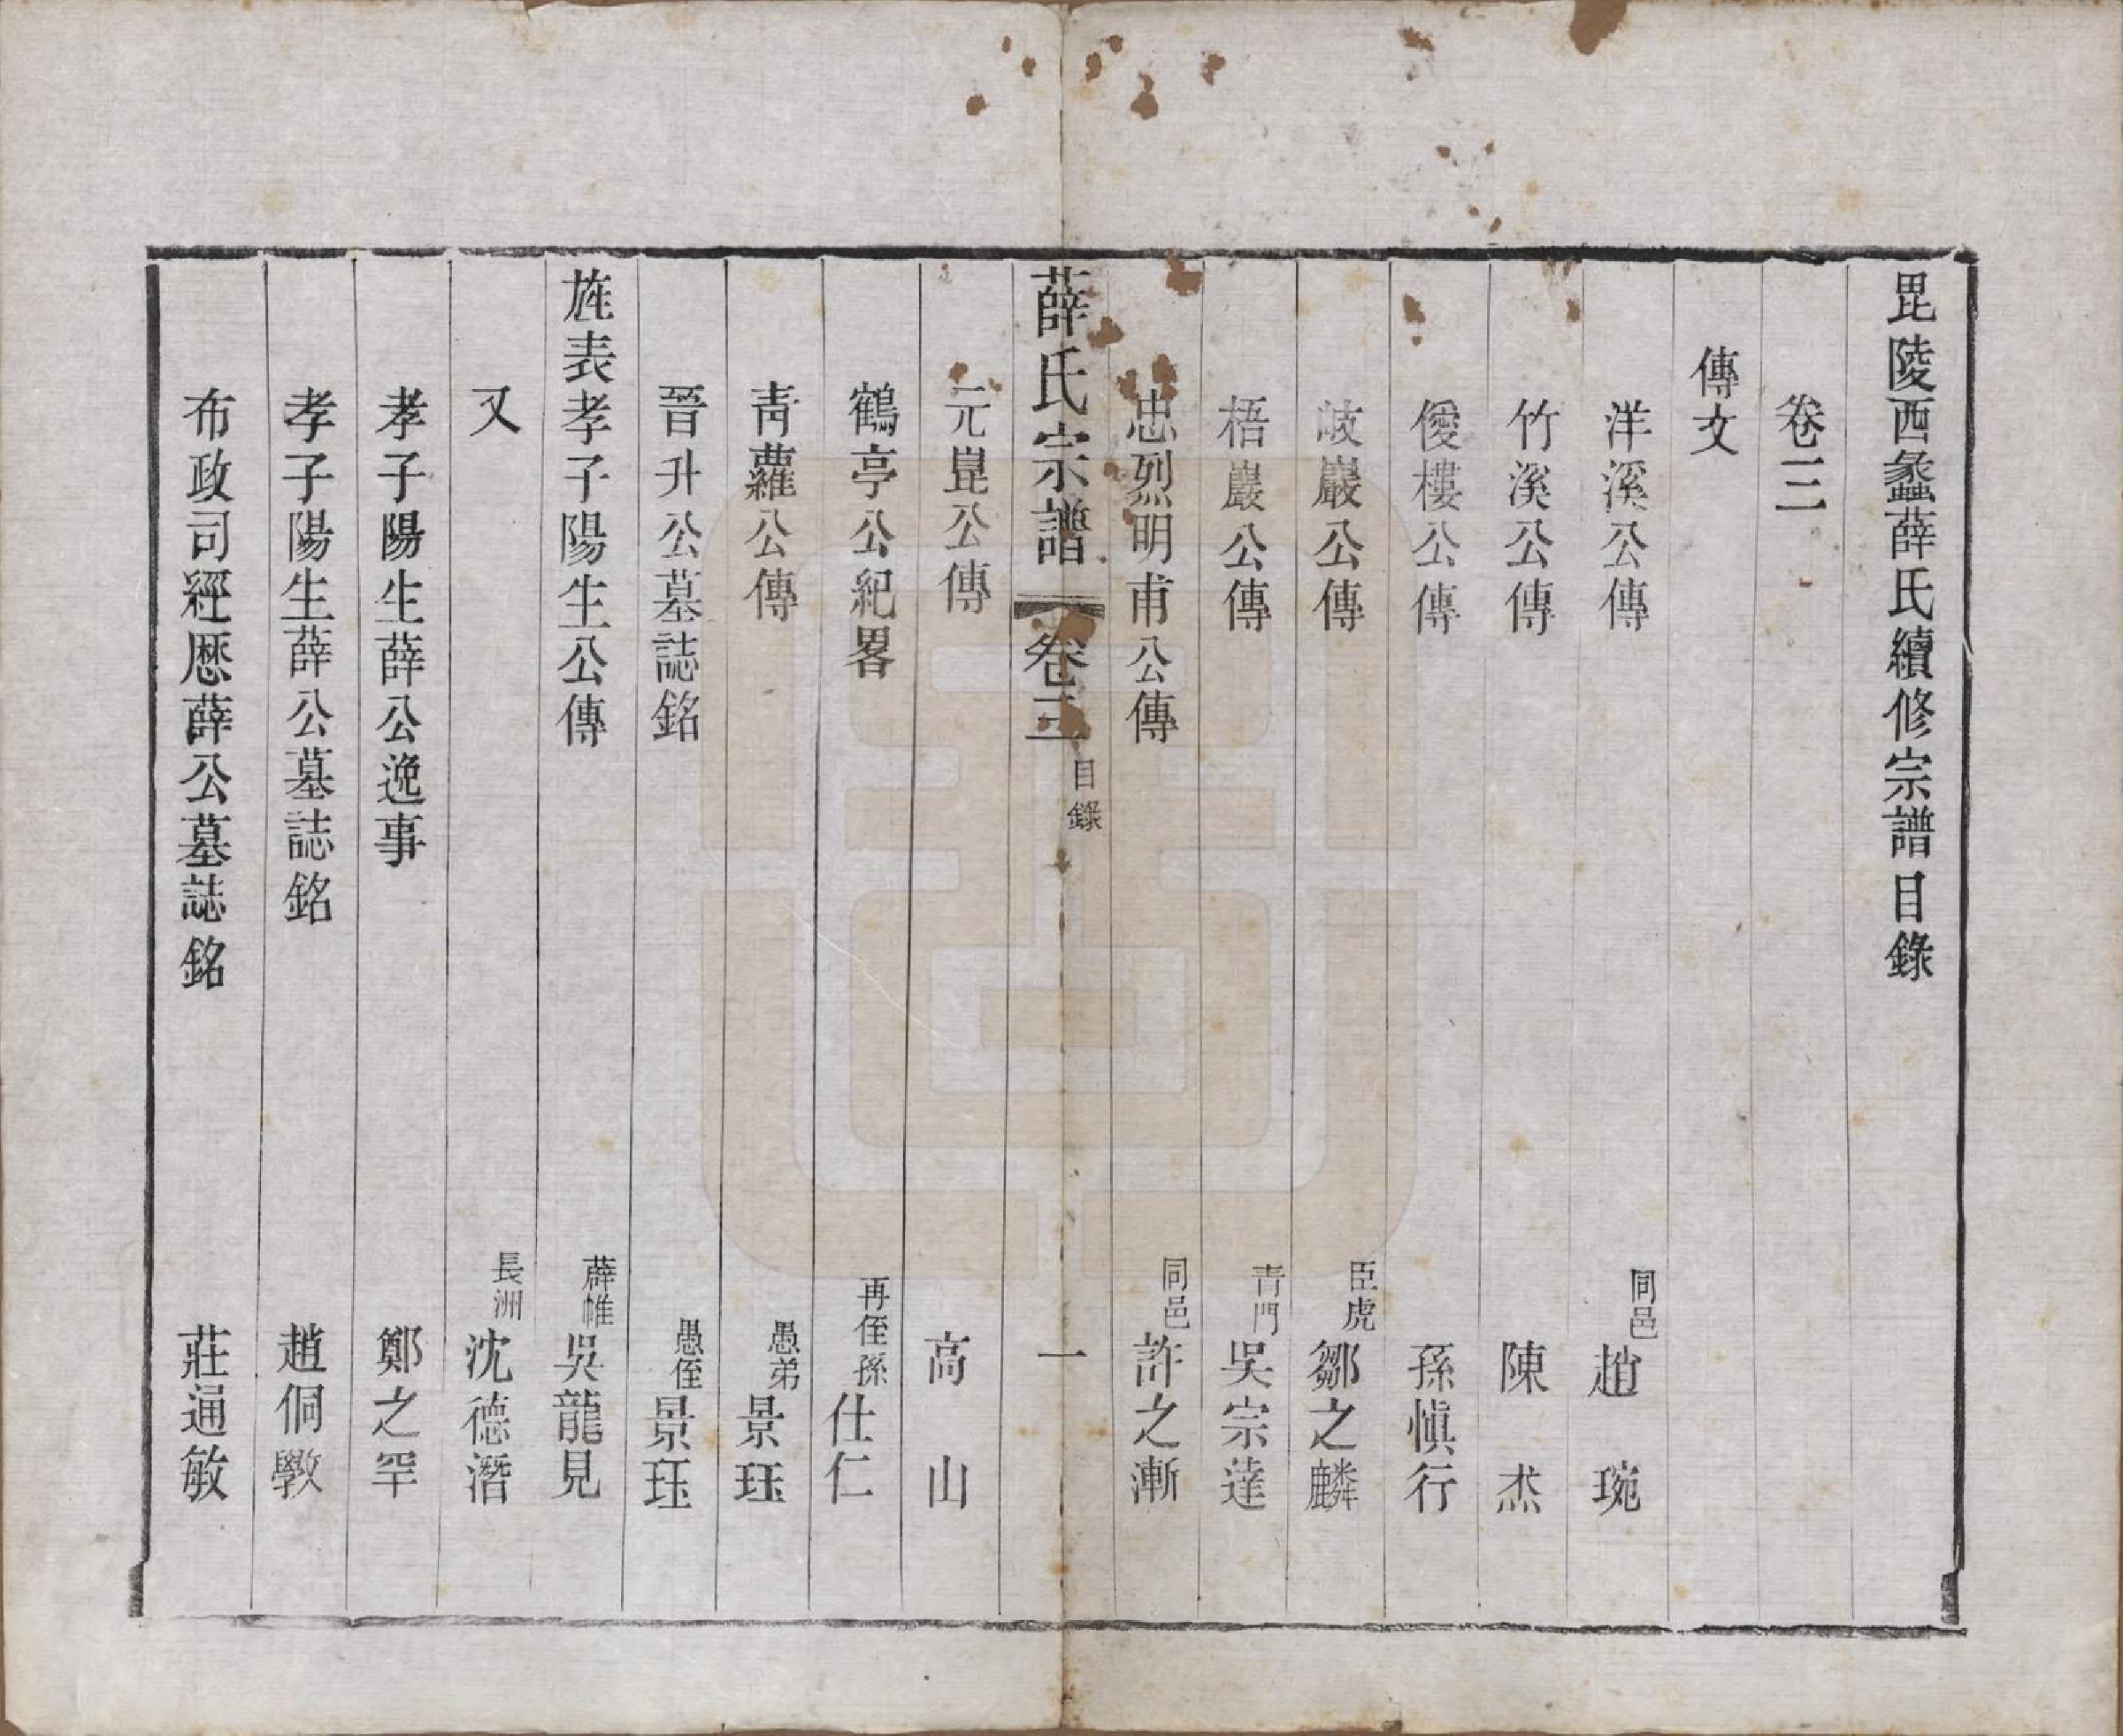 毘陵西蠡薛氏續修宗譜目錄
卷三
傳文
洋溪公傳 同邑 趙琬
竹溪公傳 陳杰
僾樓公傳 孫慎行
岐巖公傳 臣虎 鄒之麟
梧巖公傳 青門 吳宗達
忠烈明甫公傳 同邑 許之漸
薛氏宗譜 卷三 目錄 一
元崑公傳 高山
鶴亭公紀畧 再侄孫 仕仁
青蘿公傳 愚弟 景珏
晉升公墓誌銘 愚侄 景珏
旌表孝子陽生公傳 薜帷 吳龍見
又 長洲 沈德潛
孝子陽生薛公逸事 鄭之罕
孝子陽生薛公墓誌銘 趙侗斆
布政司經歷薛公墓誌銘 莊通敏